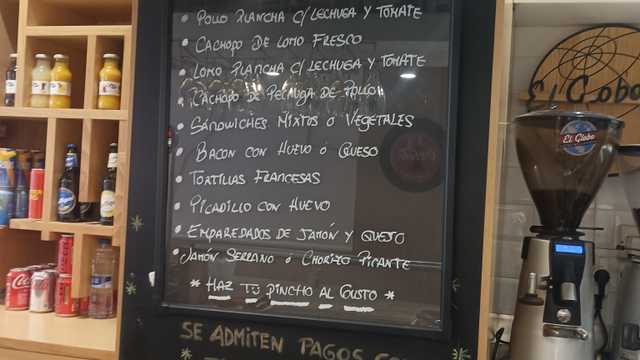 • Pollo Plancha c/Lechuga y Tomate
• Cachopo de Lomo Fresco
• Lomo Plancha c/Lechuga y Tomate
• Cachopo de Pechuga de Pollo
• Sándwiches Mixtos ó Vegetales
• Bacon con Huevo ó Queso
• Tortillas Francesas
• Picadillo con Huevo
• Emparedados de Jamón y Queso
• Jamón Serrano ó Chorizo Picante
* Haz tu Pincho al Gusto *
SE ADMITEN PAGOS
El Globo
El Globo
Coca-Cola